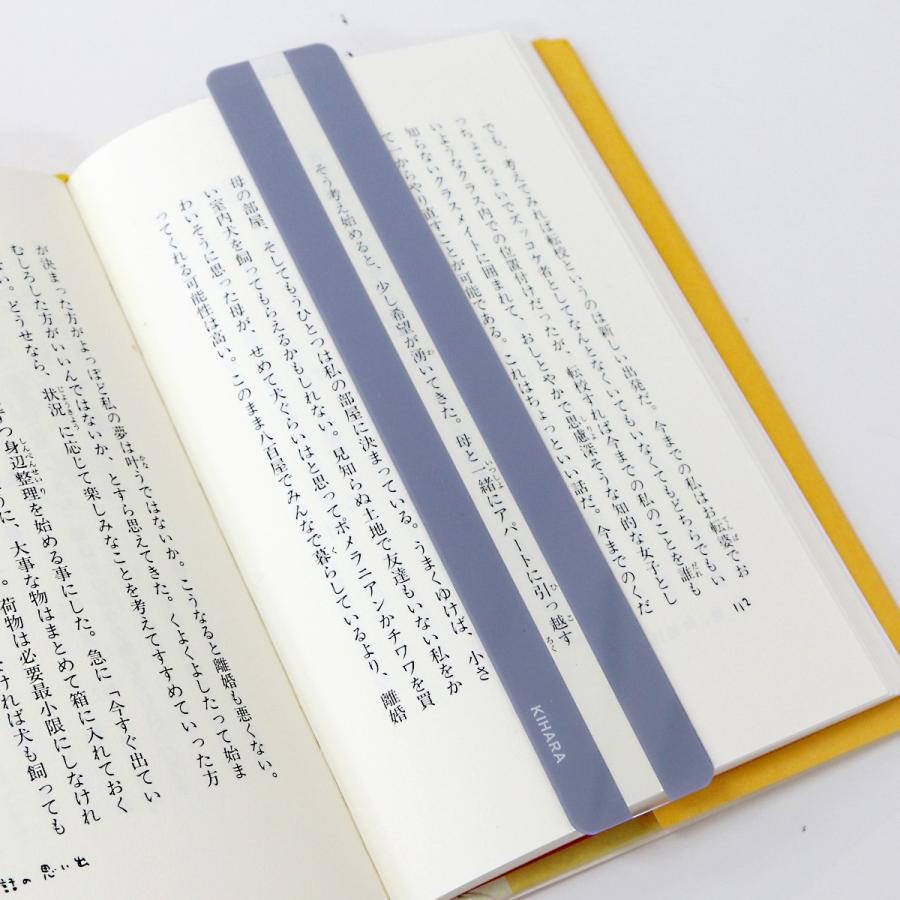 でも、考えてみれば転校というのは新しい出発だ。今までの私はお転婆でお
っちょこちょいでズッコケ者としてなんとなくいてもいなくてもどちらでもい
いようなクラス内での位置付けだったが、転校すれば今までの私のことを誰も
知らないクラスメイトに囲まれて、おしとやかで思慮深そうな知的な女子とし
て一からやり直すことが可能である。これはちょっといい話だ。今までのくだ
そう考え始めると、少し希望が湧いてきた。母と一緒にアパートに引っ越す
母の部屋、そしてもうひとつは私の部屋に決まっている。うまくゆけば、小さ
い室内犬を飼ってもらえるかもしれない。見知らぬ土地で友達もいない私をか
わいそうに思った母が、せめて犬くらいはと思ってポメラニアンかチワワを買
ってくれる可能性は高い。このまま八百屋でみんなで暮らしているより、離婚
112
KIHARA
が決まった方がよっぽど私の夢は叶うではないか、とすら思えてきた。
こうなると離婚も悪くない。
むしろした方がいいんではないか
くよくよしたって始ま
どうせなら、状況に応じて楽しみなことを考えてすすめていった方
身辺整理を始める事にした。急に「今すぐ出てい
大事な物はまとめて箱に入れておく
荷物は必要最小限にしなけれ
ければ犬も飼っても
話の思い出